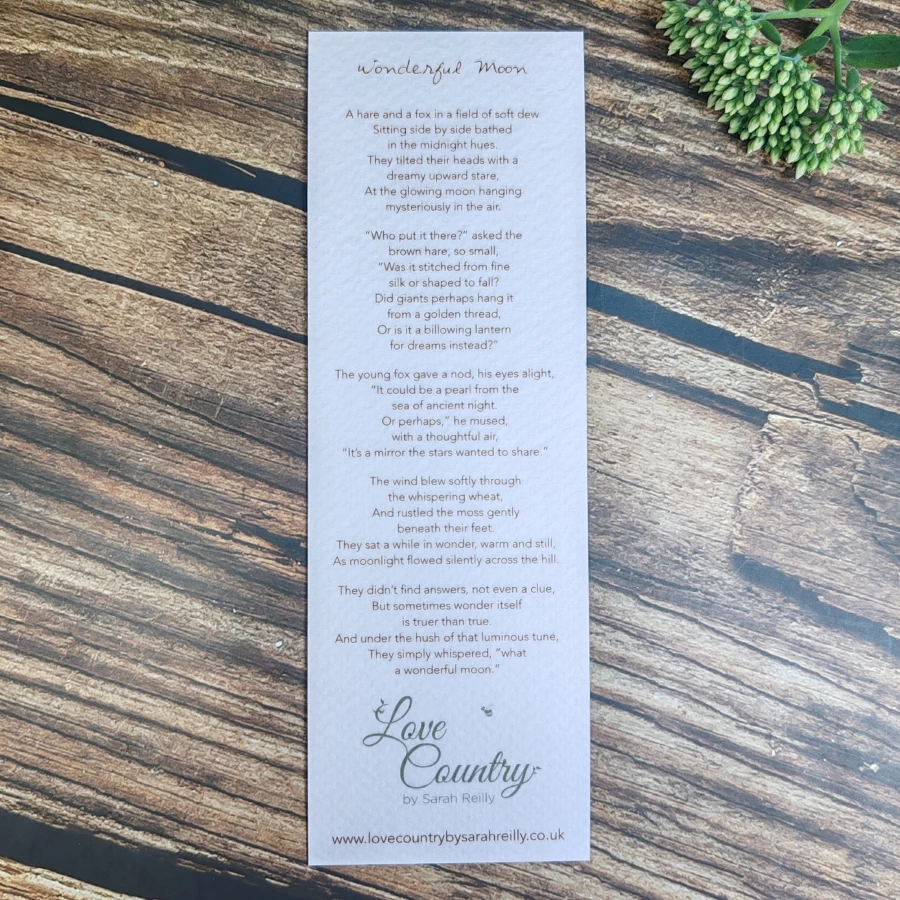 Wonderful Moon
A hare and a fox in a field of soft dew
Sitting side by side bathed
in the midnight hues.
They tilted their heads with a
dreamy upward stare,
At the glowing moon hanging
mysteriously in the air.
"Who put it there?" asked the
brown hare, so small,
"Was it stitched from fine
silk or shaped to fall?
Did giants perhaps hang it
from a golden thread,
Or is it a billowing lantern
for dreams instead?"
The young fox gave a nod, his eyes alight,
"It could be a pearl from the
sea of ancient night.
Or perhaps," he mused,
with a thoughtful air,
"It's a mirror the stars wanted to share."
The wind blew softly through
the whispering wheat,
And rustled the moss gently
beneath their feet.
They sat a while in wonder, warm and still,
As moonlight flowed silently across the hill.
They didn't find answers, not even a clue,
But sometimes wonder itself
is truer than true.
And under the hush of that luminous tune,
They simply whispered, "what
a wonderful moon."
Love
Country
by Sarah Reilly
www.lovecountrybysarahreilly.co.uk